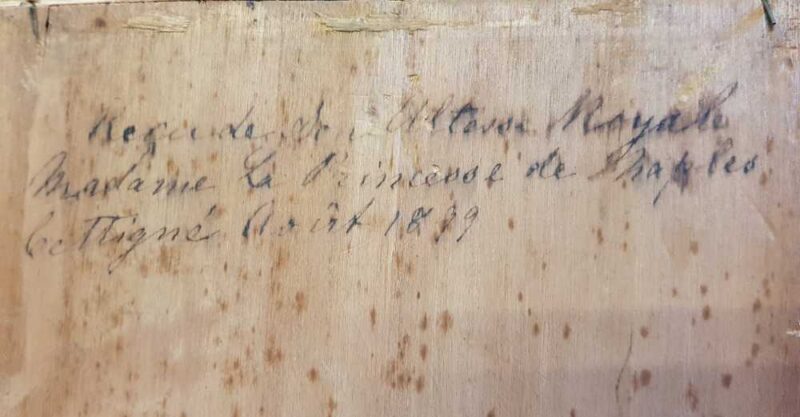 Reçu de Son Altesse Royale
Madame La Princesse de Naples
Août 1899